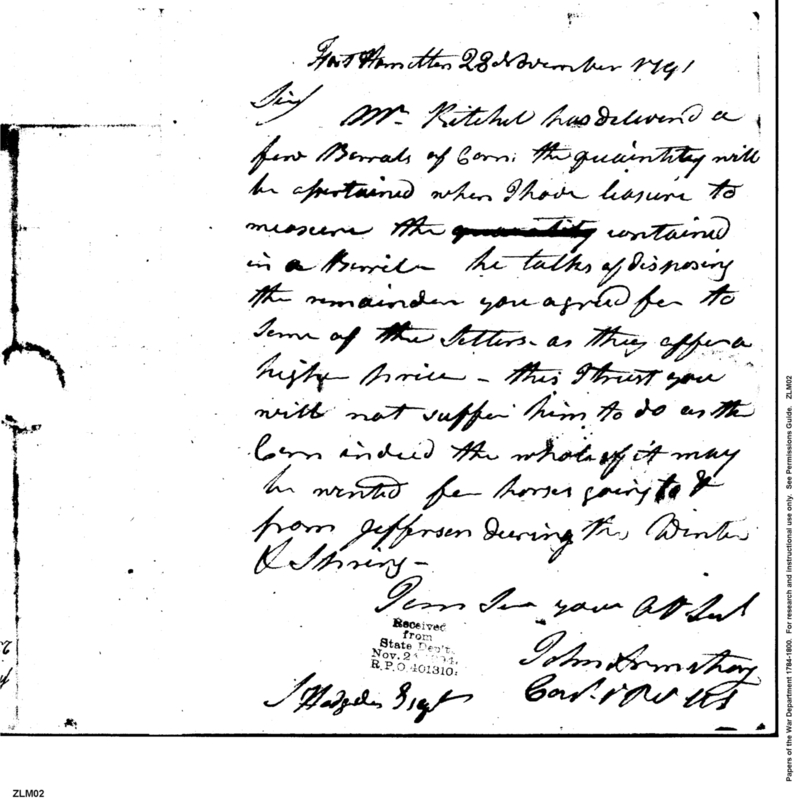 Fort Hamilton 28 November 1791
Sir
Mr. Kitchel has deliverd a
few Barrals of Corn; the quaintity will
be assertained when I have leasure to
measure the quantity contained
in a Barril he talks of disposing
the remainder you agreed for to
some of the Setlers as they offer a
higher price - this I trust you
will not suffer him to do as the
Corn indeed the whole of it may
be wanted for horses going to &
from Jefferson dureing the Winter
& Spring -
I am Sir your Obt Servt
John Armstrong
Capt. 1 Rt US
J Hodgdon Esqr
Received
from
State Dep't.
Nov. 2
R.P.O. 401310.
ZLM02
Papers of the War Department 1784-1800. For research and instructional use only. See Permissions Guide. ZLM02